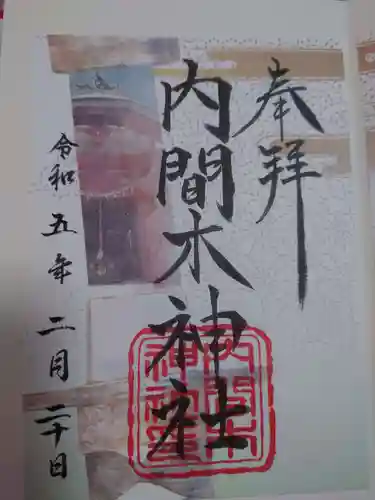 奉拝
内間木神社
令和五年二月二十日